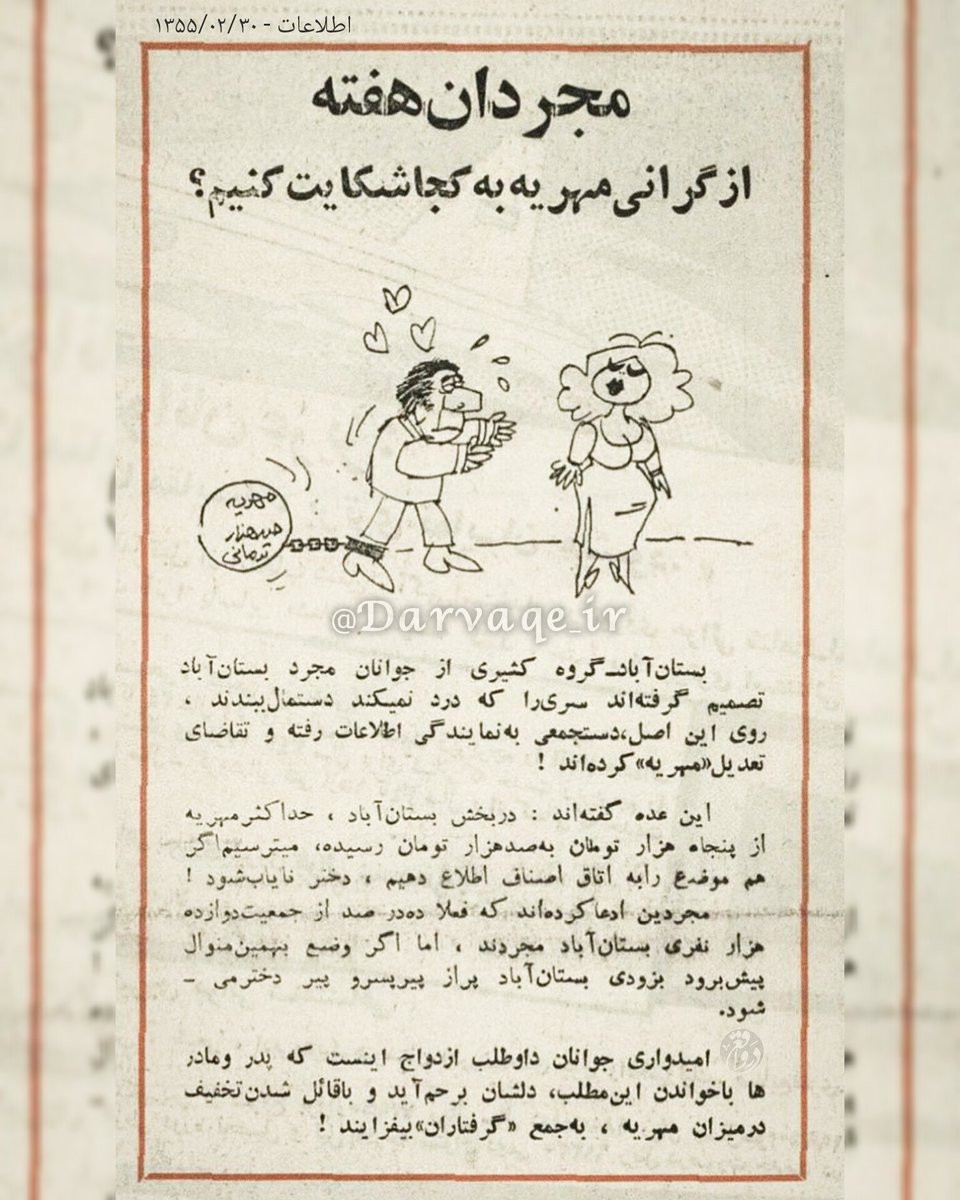 اطلاعات - ۱۳۵۵/۰۲/۳۰
مجردان هفته
از گرانی مهریه به کجا شکایت کنیم؟
مهریه
صدهزار
تومانی
@Darvaqe_ir
بستان‌آباد ـ گروه کثیری از جوانان مجرد بستان‌آباد
تصمیم گرفته‌اند سری‌را که درد نمیکند دستمال‌ببندند ،
روی این اصل،دستجمعی به‌نمایندگی اطلاعات رفته و تقاضای
تعدیل«مهریه»کرده‌اند !
این عده گفته‌اند : دربخش بستان‌آباد ، حداکثرمهریه
از پنجاه هزار تومان به‌صدهزار تومان رسیده، میترسیم‌اگر
هم موضوع رابه اتاق اصناف اطلاع دهیم ، دختر نایاب‌شود !
مجردین ادعاکرده‌اند که فعلا ده‌در صد از جمعیت‌دوازده
هزار نفری بستان‌آباد مجردند ، اما اگر وضع بهمین‌منوال
پیش‌برود بزودی بستان‌آباد پراز پیرپسرو پیر دخترمی ـ
شود.
امیدواری جوانان داوطلب ازدواج اینست که پدر ومادر
ها باخواندن این‌مطلب، دلشان برحم‌آید و باقائل شدن‌تخفیف
درمیزان مهریه ، به‌جمع «گرفتاران»بیفزایند !